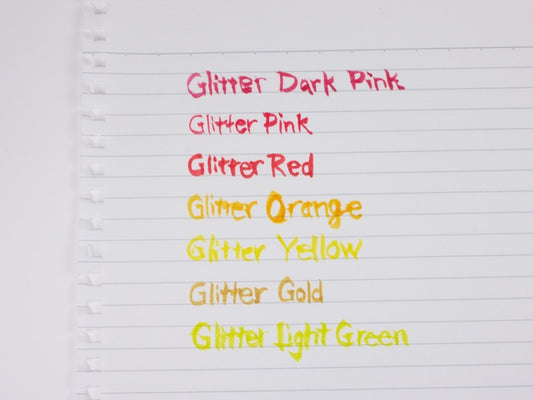 Glitter Dark Pink
Glitter Pink
Glitter Red
Glitter Orange
Glitter Yellow
Glitter Gold
Glitter Light Green